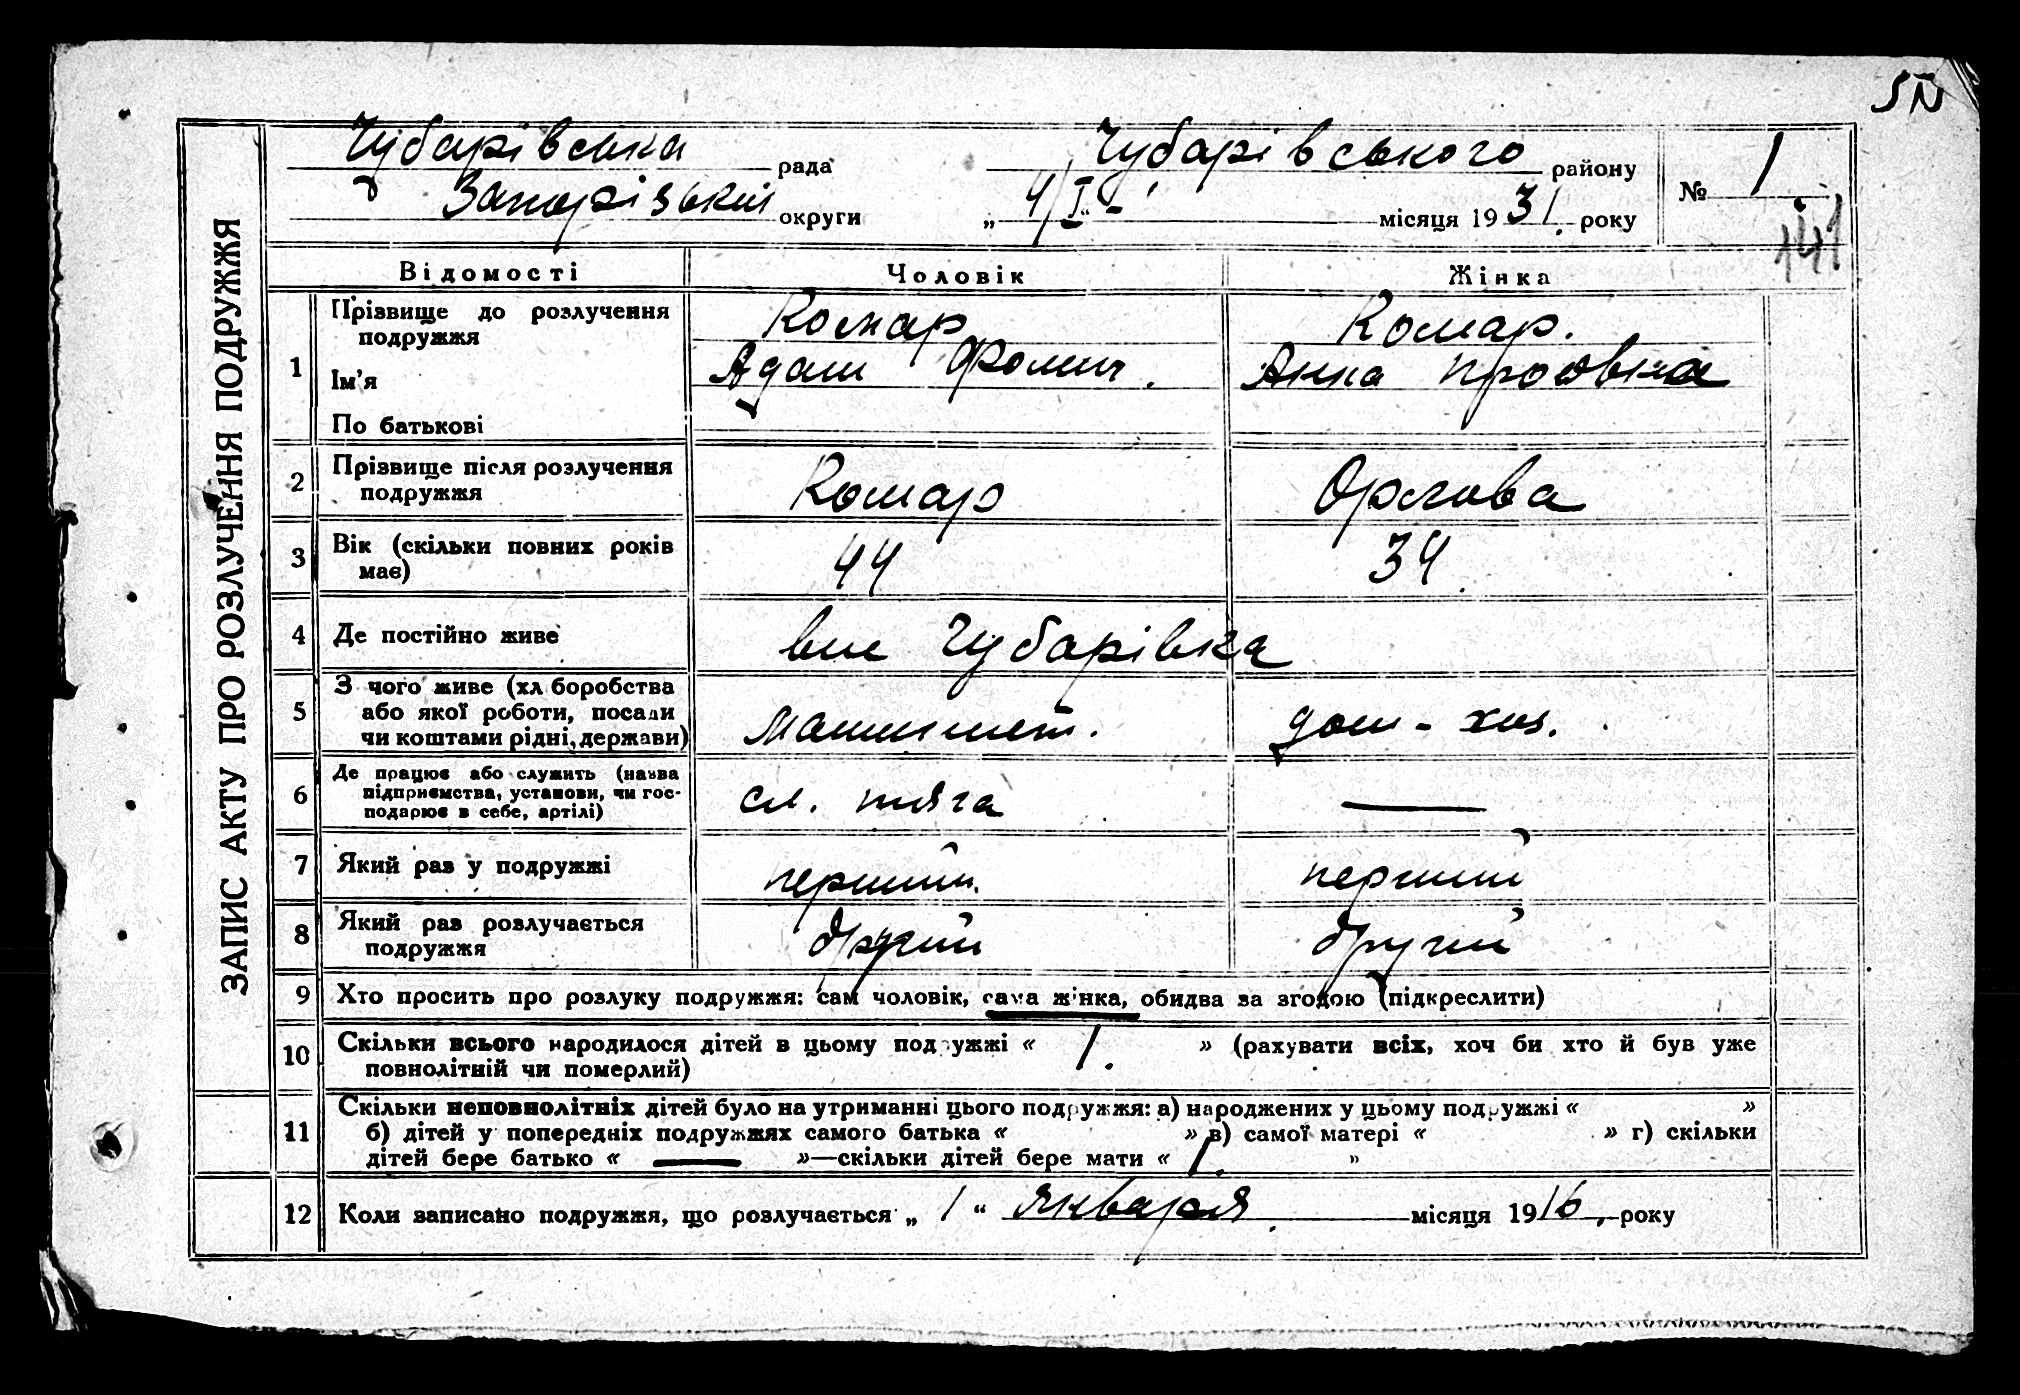 ЗАПИС АКТУ ПРО РОЗЛУЧЕННЯ ПОДРУЖЖЯ
Чубарівська рада Чубарівського району № 1
Запорізький округи „ 4/I “ - місяця 1931. року
141
Відомості Чоловік Жінка
1 Прізвище до розлучення подружжя Комар Комар.
Ім'я Адам Фомич. Анна
По батькові
2 Прізвище після розлучення подружжя Комар Орлова
3 Вік (скільки повних років має) 44 34.
4 Де постійно живе Чубарівка
5 З чого живе (хл боробства або якої роботи, посади чи коштами рідні, держави) Машинист. дом - хоз.
6 Де працює або служить (назва підприємства, установи, чи господарює в себе, артілі) сл. тяга —
7 Який раз у подружжі перший. перший
8 Який раз розлучається подружжя другий другий
9 Хто просить про розлуку подружжя: сам чоловік, сама жінка, обидва за згодою (підкреслити)
10 Скільки всього народилося дітей в цьому подружжі « 1. » (рахувати всіх, хоч би хто й був уже
повнолітній чи померлий)
11 Скільки неповнолітніх дітей було на утриманні цього подружжя: а) народжених у цьому подружжі « »
б) дітей у попередніх подружжях самого батька « » в) самої матері « » г) скільки
дітей бере батько « — »—скільки дітей бере мати « 1. »
12 Коли записано подружжя, що розлучається „ 1 “ января місяця 1916. року